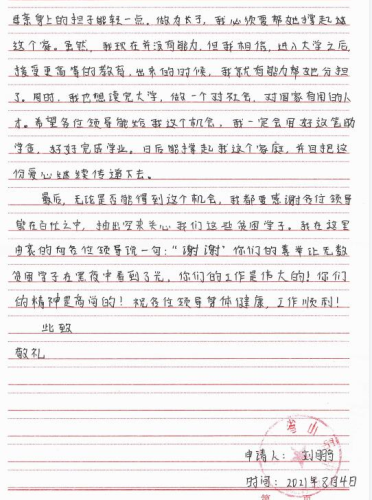 母亲身上的担子能轻一点。做为长子，我必须要帮她撑起这
这个家。虽然，我现在并没有能力，但我相信，进入大学之后，
接受更高等的教育，出来的时候，我就有能力帮她分担
了。同时，我也想读完大学，做一个对社会，对国家有用的人
才。希望各位领导能给我这个机会，我一定会用好这笔助
学金，好好完成学业。日后能撑起我这个家庭，并且把这
份爱心继续传递下去。
最后，无论是否能得到这个机会，我都要感谢各位领导
能在百忙之中，抽出空来关心我们这些贫困学子。我在这里
由衷的向各位领导说一句：“谢谢”你们的善举让无数
贫困学子在黑夜中看到了光，你们的工作是伟大的！你们
的精神是高尚的！祝各位领导身体健康，工作顺利！
此致
敬礼
申请人：刘
时间：2021年8月4日
第 页